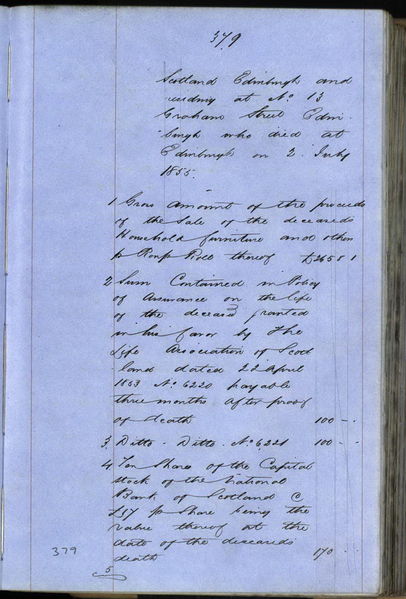 379
Scotland Edinburgh and
residing at No. 13
Graham Street Edin
burgh who died at
Edinburgh on 2. July
1855.
1 Gross Amount of the proceeds
of the Sale of the deceaseds
Household furniture and others
p Roup Roll thereof £265 8 1
2 Sum Contained in Policy
of Assurance on the life
of the deceased granted
in his favor by the
Life Association of Scot
land dated 22 April
1853 No. 6220 payable
three months after proof
of death 100 - -
3. Ditto. Ditto. No. 6221 100 - -
4 Ten Shares of the Capital
stock of the National
Bank of Scotland @
£17 p Share being the
value thereof at the
date of the deceaseds
death 170
379
5